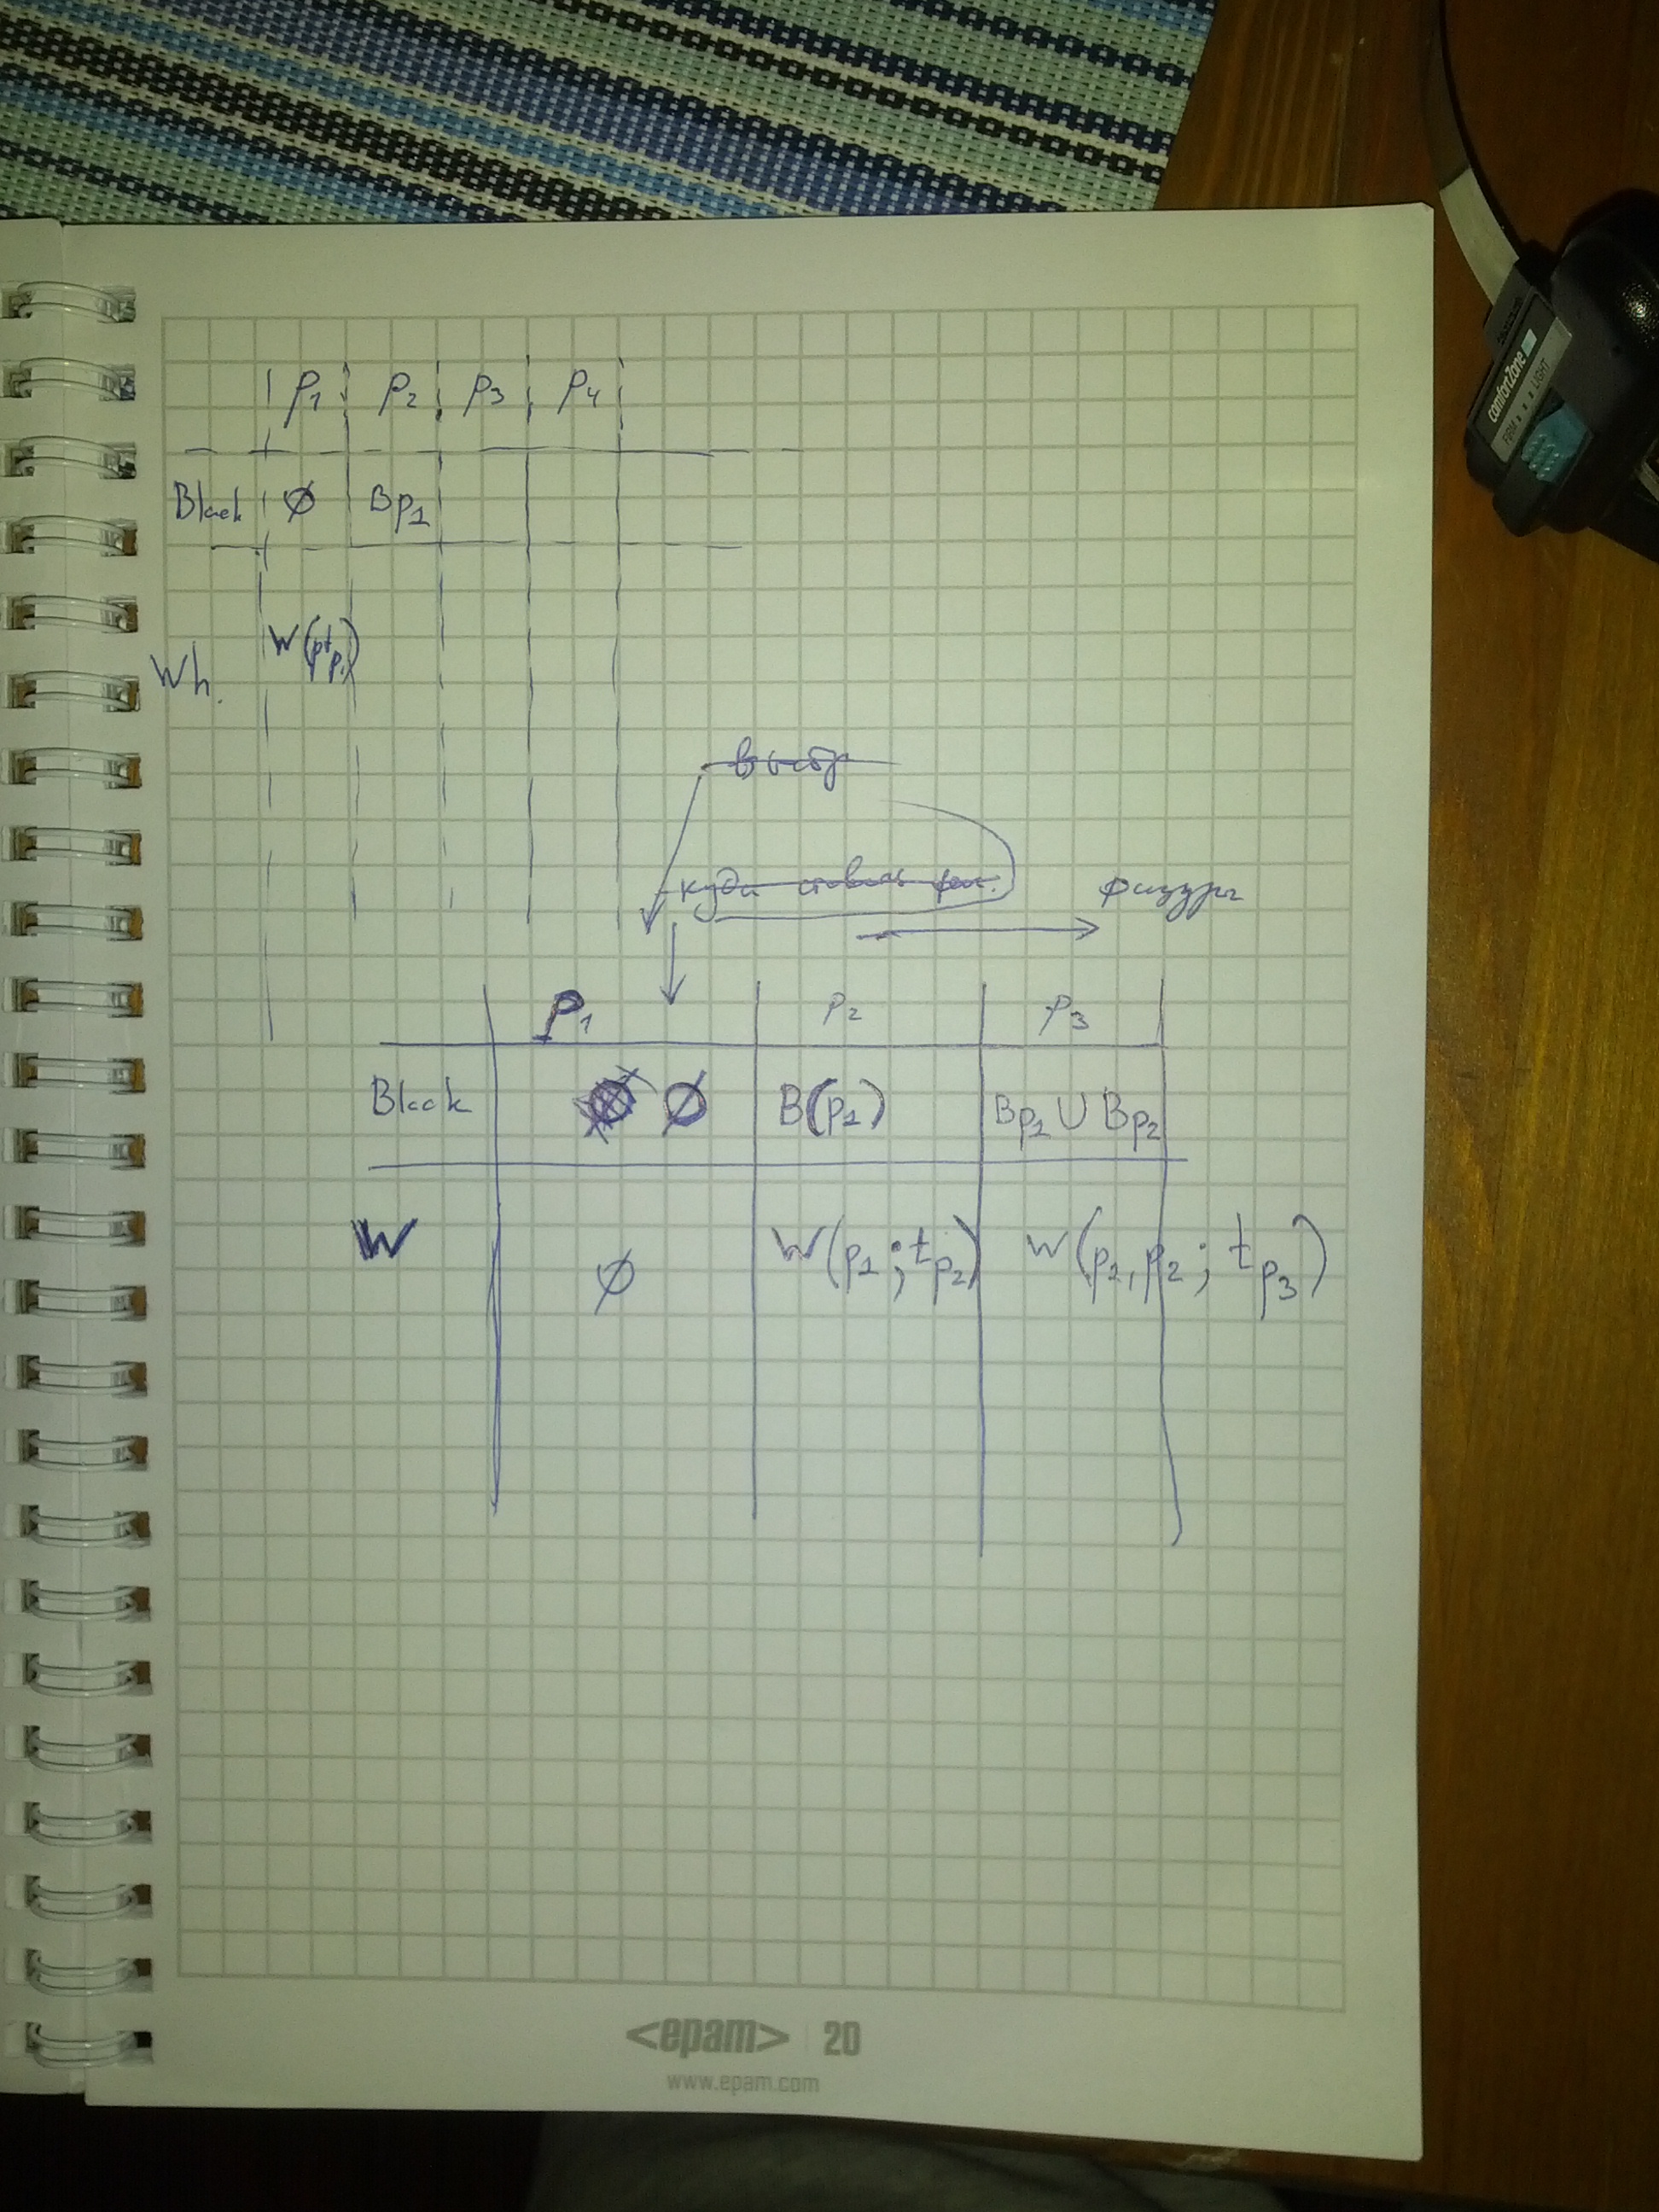 p1 p2 p3 p4
Black ∅ Bp1
Wh. W(
куда ставить
фигуры
P1 p2 p3
Black ∅ B(p1) Bp1 ∪ Bp2
W ∅ W(p1; tp2) W(p1, p2; tp3)
<epam> | 20
www.epam.com
comfortZone
FIRM LIGHT